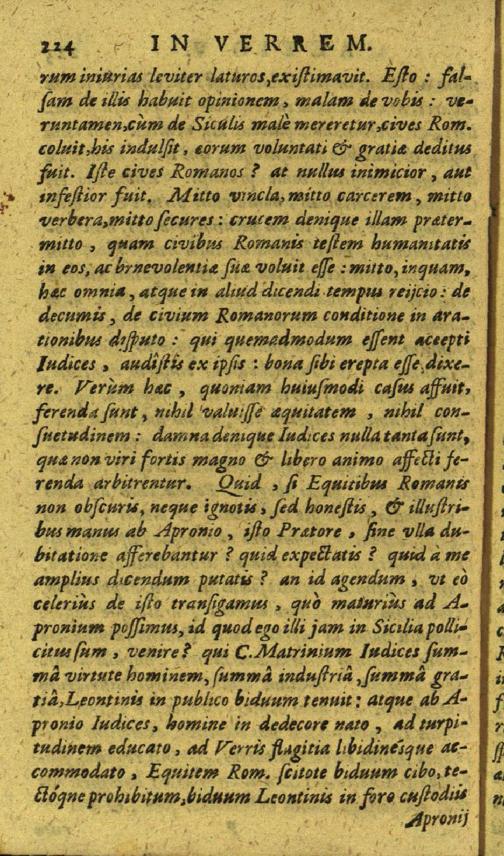 224 IN VERREM.
rum iniurias leviter laturos, existimavit. Esto : fal-
sam de illis habuit opinionem, malam de vobis : ve-
runtamen, cùm de Siculis malè mereretur, cives Rom.
coluit, his indulsit, eorum voluntati & gratiæ deditus
fuit. Iste cives Romanos ? at nullus inimicior, aut
infestior fuit. Mitto vincla, mitto carcerem, mitto
verbera, mitto secures : crucem denique illam præter-
mitto, quam civibus Romanis testem humanitatis
in eos, ac brnevolentiæ suæ voluit esse : mitto, inquam,
hæc omnia, atque in aliud dicendi tempus reijcio : de
decumis, de civium Romanorum conditione in ara-
tionibus disputo : qui quemadmodum essent accepti
Iudices, audistis ex ipsis : bona sibi erepta esse dixe-
re. Verùm hæc, quoniam huiusmodi casus affuit,
ferenda sunt, nihil valuisse æquitatem, nihil con-
suetudinem : damna denique Iudices nulla tanta sunt,
quæ non viri fortis magno & libero animo affecti fe-
renda arbitrentur. Quid, si Equitibus Romanis
non obscuris, neque ignotis, sed honestis, & illustri-
bus manus ab Apronio, isto Prætore, sine vlla du-
bitatione afferebantur ? quid expectatis ? quid à me
amplius dicendum putatis ? an id agendum, vt eò
celeriùs de isto transigamus, quò maturiùs ad A-
pronium possimus, id quod ego illi jam in Sicilia polli-
citus sum, venire ? qui C. Matrinium Iudices sum-
mâ virtute hominem, summâ industriâ, summâ gra-
tiâ, Leontinis in publico biduum tenuit : atque ab A-
pronio Iudices, homine in dedecore nato, ad turpi-
tudinem educato, ad Verris flagitia libidinésque ac-
commodato, Equitem Rom. scitote biduum cibo, te-
ctóque prohibitum, biduum Leontinis in foro custodiis
Apronij